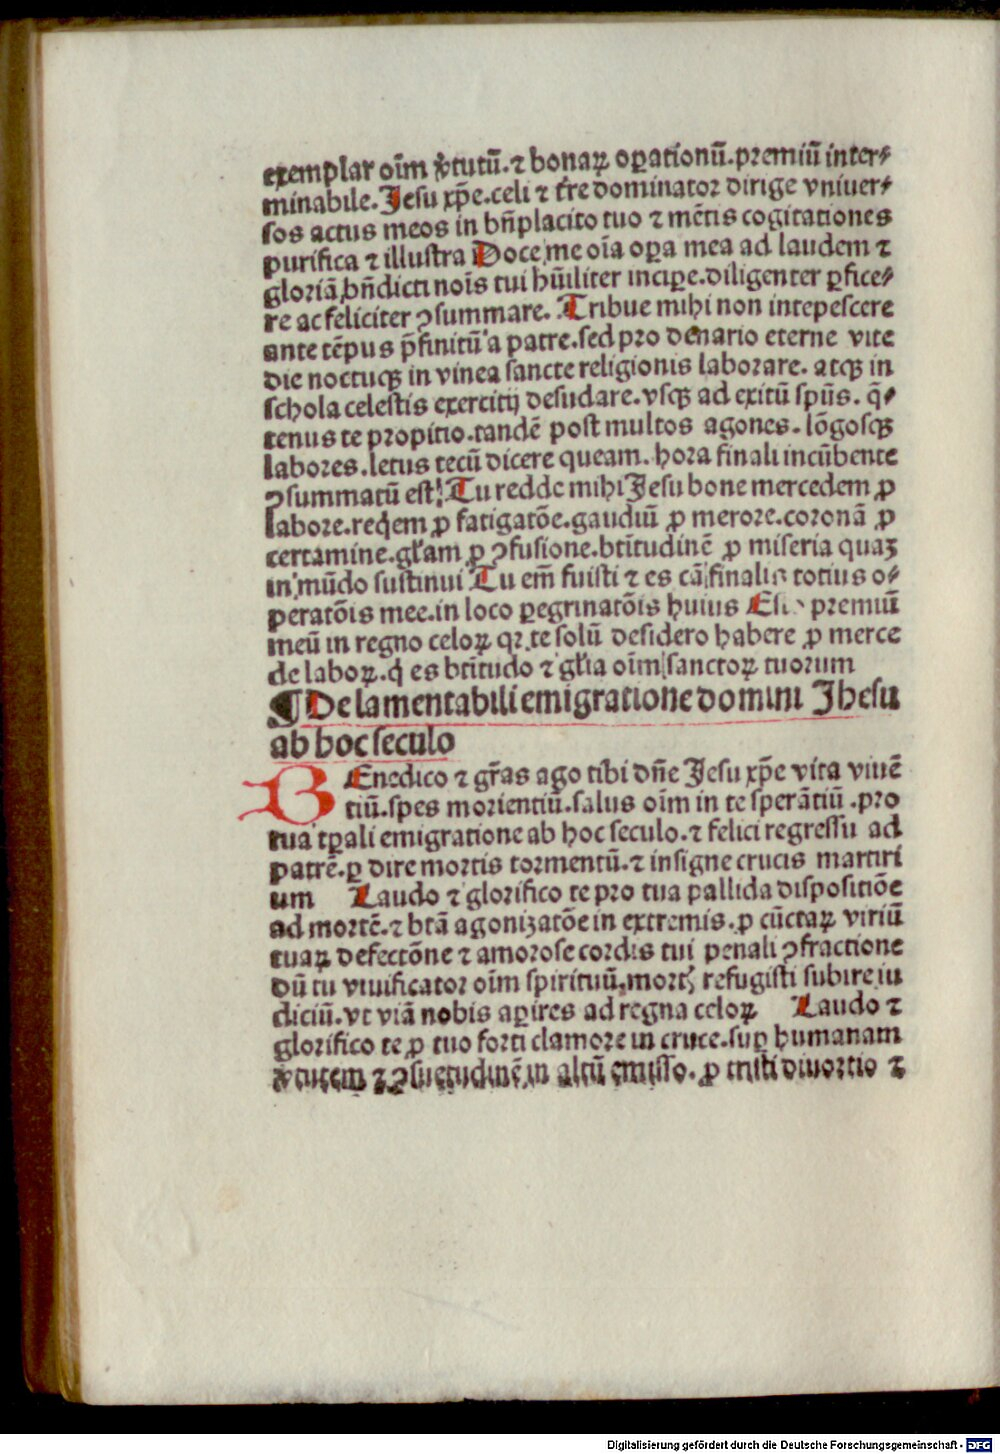 exemplar oīm ꝟtutū. ⁊ bonaꝝ oꝑationū. premiū inter⸗
minabile. Jesu xp̄e. celi ⁊ t̄re dominator dirige vniuer⸗
sos actus meos in bn̄placito tuo ⁊ mētis cogitationes
purifica ⁊ illustra Doce me oīa oꝑa mea ad laudem ⁊
gloriā bn̄dicti noīs tui hūiliter inciꝑe. diligenter ꝑfice⸗
re ac feliciter ꝯsummare. Tribue mihi non intepescere
ante tēpus p̄finitū a patre. sed pro denario eterne vite
die noctuqꝫ in vinea sancte religionis laborare. atqꝫ in
schola celestis exercitij desudare. vsqꝫ ad exitū spūs. q̄⸗
tenus te propitio. tandē post multos agones. lōgosqꝫ
labores. letus tecū dicere queam. hora finali incūbente
ꝯsummatū est! Tu redde mihi Jesu bone mercedem ꝓ
labore. reqem ꝓ fatigatōe. gaudiū ꝓ merore. coronā ꝓ
certamine. gl̄iam ꝓ ꝯfusione. btītudinē ꝓ miseria quaꝫ
in mūdo sustinui Tu em̄ fuisti ⁊ es cā finalis totius o⸗
peratōis mee. in loco ꝑegrinatōis huius Esto premiū
meū in regno celoꝝ qꝛ te solū desidero habere ꝓ merce
de laboꝝ. q̇ es btītudo ⁊ gl̄ia oīm sanctoꝝ tuorum
¶ De lamentabili emigratione domini Jhesu
ab hoc seculo
BEnedico ⁊ gr̄as ago tibi dn̄e Jesu xp̄e vita viuē
tiū. spes morientiū. salus oīm in te sperātiū. pro
tua tꝑali emigratione ab hoc seculo. ⁊ felici regressu ad
patrē. ꝑ dire mortis tormentū. ⁊ insigne crucis martiri
um Laudo ⁊ glorifico te pro tua pallida dispositiōe
ad mortē. ⁊ btā agonizatōe in extremis. ꝑ cūctaꝝ viriū
tuaꝝ defectōne ⁊ amorose cordis tui penali ꝯfractione
dū tu viuificator oīm spirituū. mortꝭ refugisti subire iu
diciū. vt viā nobis aꝑires ad regna celoꝝ Laudo ⁊
glorifico te ꝓ tuo forti clamore in cruce. suꝑ humanam
ꝟtutem ⁊ ꝯsuetudinē in altū emisso. ꝓ tristi diuortio ⁊
Digitalisierung gefördert durch die Deutsche Forschungsgemeinschaft - DFG